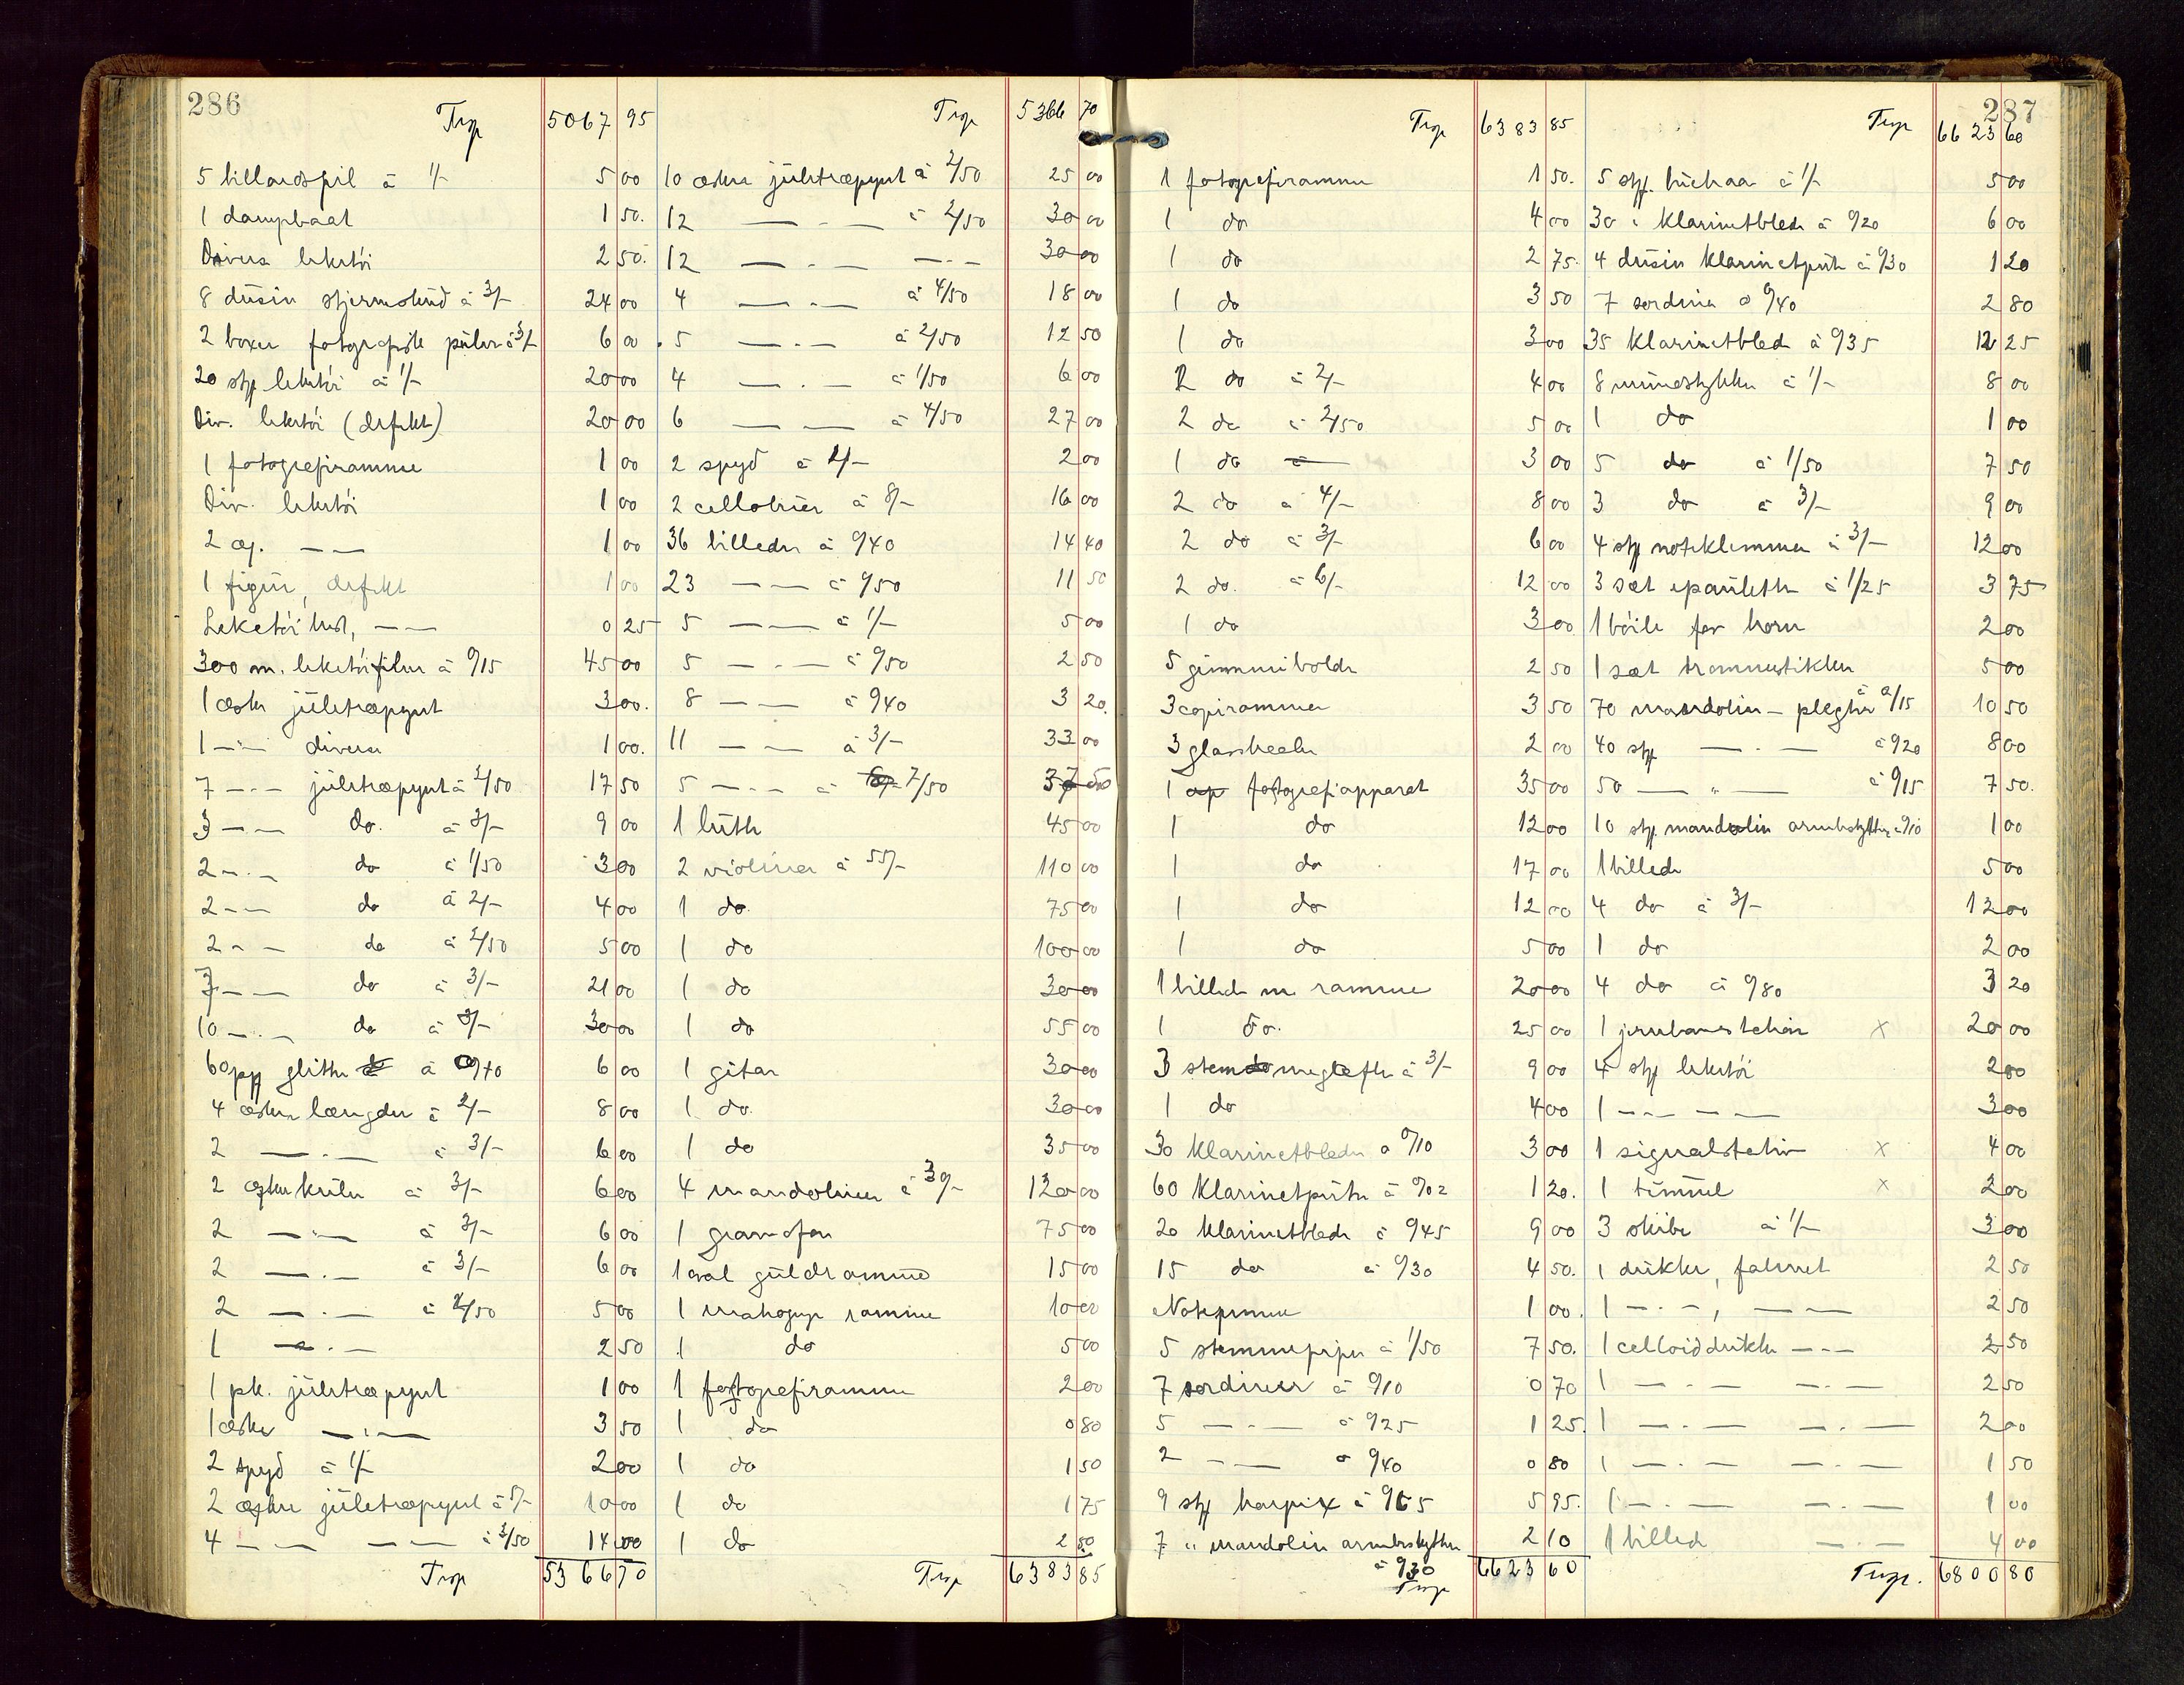 286
Trsp 5067 95
5 billardspil à 1/- 5 00
1 dampbaat 1 50.
Divers leketöi 2 50.
8 dusin stjernskud à 3/- 24 00
2 boxer fotografisk pulver à 3/- 6 00
20 stp leketöi à 1/- 20 00
Div. leketöi (defekt) 20 00
1 fotografiramme 1 00
Div. leketöi 1 00
2 æ. — — 1 00
1 figur, defekt 1 00
Leketöi hest, — — 0 25
300 m. leketöifilm à 0/15 45 00
1 æske juletræpynt 3 00.
1 — " — diverse 1 00.
7 — - — juletræpynt à 2/50 17 50
3 — — do. à 3/- 9 00
2 — . — do à 1/50 3 00
2 — — do à 2/- 4 00
2 — — do à 2/50 5 00
7 — — do à 3/- 21 00
10 — . — do à 3/- 30 00
60 pp glitter à 0/10 6 00
4 æsker længder à 2/- 8 00
2 — . — à 3/- 6 00
2 æsker kuler à 3/- 6 00
2 — " — à 3/- 6 00
2 — . — à 3/- 6 00
2 — . — à 2/50 5 00
1 — . — 2 50
1 pk. juletræpynt 1 00
1 æske — . — 3 50
2 spyd à 1/- 2 00
2 æsker juletræpynt à 5/- 10 00
4 — — — — à 3/50 14 00
Trsp 5366 70
Trsp 5366 70
10 æsker juletræpynt à 2/50 25 00
12 — - — à 2/50 30 00
12 — . — — . — 30 00
4 — . — à 4/50 18 00
5 — . — à 2/50 12 50
4 — . — à 1/50 6 00
6 — — à 4/50 27 00
2 spyd à 1/- 2 00
2 cellobuer à 8/- 16 00
36 billeder à 0/40 14 40
23 — — à 0/50 11 50
5 — — à 1/- 5 00
5 — . — à 0/50 2 50
8 — — à 0/40 3 20.
11 — — à 3/- 33 00
5 — . — à 7/50 37 50
1 luth 45 00
2 violiner à 55/- 110 00
1 do. 75 00
1 do 100 00
1 do 30 00
1 do 55 00
1 gitar 30 00
1 do. 30 00
1 do 35 00
4 mandoliner à 30/- 120 00
1 gramofon 75 00
1 oval guldramme 15 00
1 mahogny ramme 10 00
1 do 5 00
1 fotografiramme 2 00
1 do 0 80
1 do 1 50
1 do 1 75
1 do 2 50
Trsp 6383 85
287
Trsp 6383 85
1 fotografiramme 1 50.
1 do 4 00
1 do 2 75.
1 do 3 50
1 do 3 00
2 do à 2/- 4 00
2 do à 2/50 5 00
1 do 3 00
2 do à 4/- 8 00
2 do à 3/- 6 00
2 do. à 6/- 12 00
1 do 3 00
5 gummibolde 2 50
3 copirammer 3 50
3 glasskaaler 2 00
1 fotografiapparat 35 00
1 do 12 00
1 do 17 00
1 do 12 00
1 do 5 00
1 billede m ramme 20 00
1 do. 25 00
3 stemmegafler à 3/- 9 00
1 do 4 00
30 Klarinetbleder à 0/10 3 00
60 Klarinetputer à 0/02 1 20.
20 Klarinetblede à 0/45 9 00
15 do à 0/30 4 50.
Notepenne 1 00.
5 stemmepiper à 1/50 7 50.
7 sordiner à 0/10 0 70
5 — - — à 0/25 1 25.
2 — — à 0/40 0 80
9 stp harpix à 0/65 5 95.
7 " mandolin armbeskytter à 0/30 2 10
Trsp 6623 60
Trsp 6623 60
5 stp. à 1/- 5 00
30 " Klarinetblede à 0/20 6 00
4 dusin Klarinetputer à 0/30 1 20
7 sordiner à 0/40 2 80
35 Klarinetblede à 0/35 12 25
8 mundstykker à 1/- 8 00
1 do 1 00
5 do à 1/50 7 50
3 do à 3/- 9 00
4 stp noteklemmer à 3/- 12 00
3 sæt epauletter à 1/25 3 75
1 böile for horn 2 00
1 sæt trommestikker 5 00
70 mandolin - plegter à 0/15 10 50
40 stp — . — à 0/20 8 00
50 — " — à 0/15 7 50.
10 stp. mandolin armbeskytter à 0/10 1 00
1 billede 5 00
4 do à 3/- 12 00
1 do 2 00
4 do à 0/80 3 20
1 jernbanestation x 20 00
4 stp leketöi 2 00
1 — — — — 3 00
1 signalstativ x 4 00
1 tunnel x 2 00
3 skibe à 1/- 3 00
1 dukke, falmet 2 50
1 — . —, — — 2 50
1 celloiddukke — — 2 50
1 — . — — . — 2 50
1 — . — — . — 2 00
1 — . — — . — 1 50
1 — . — — . — 1 00
1 billed — . — 4 00
Trsp. 6800 80